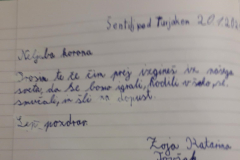 Šentvid pod Turjakom 20.1.202
Neljuba korona
Prosim te če čim prej izgineš iz našega
sveta, da se bomo igrali, hodili v šolo, se
smučali, in šli na dopust.
Lep pozdrav.
Zoja Katarina